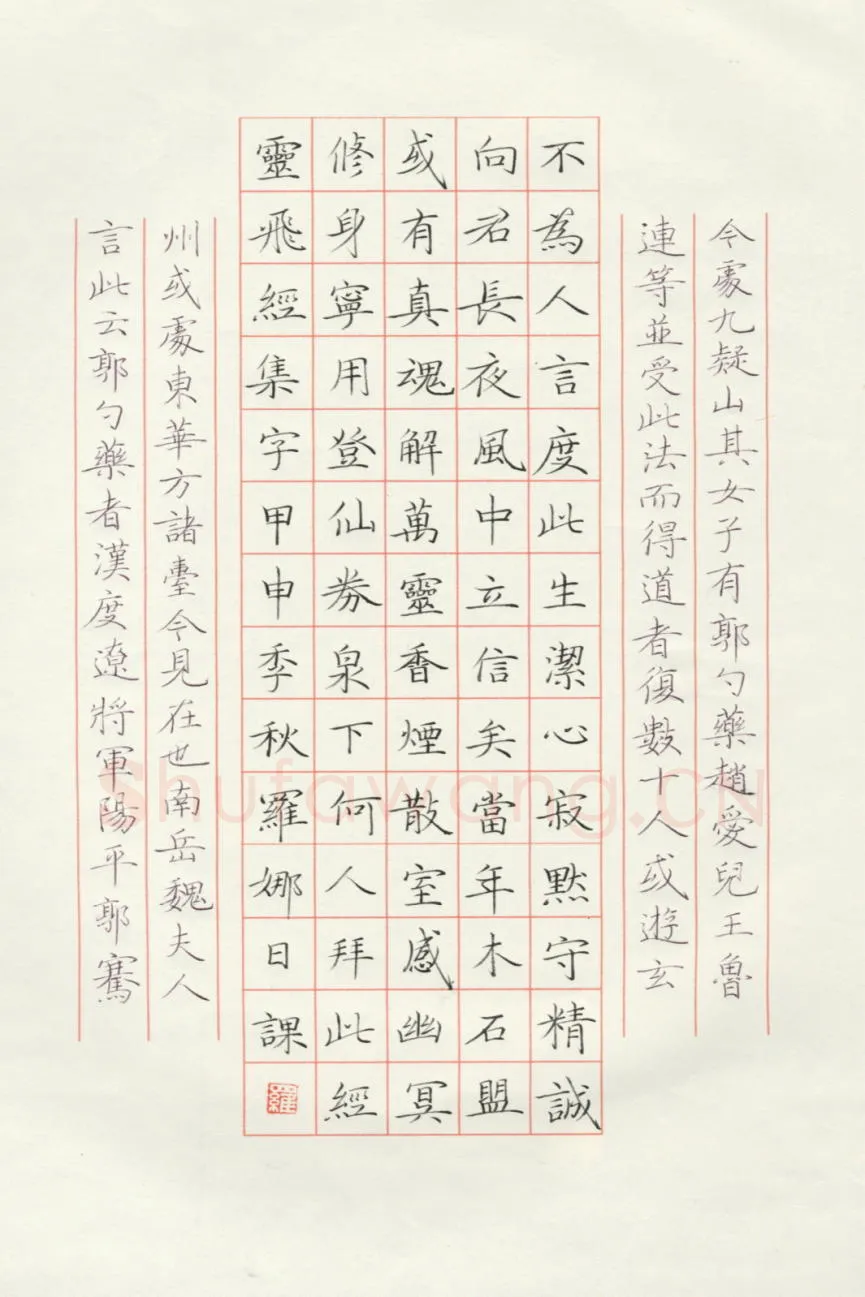 令處九疑山其女子有郭勺藥趙愛兒王魯
連等並受此法而得道者復數十人或遊玄
不為人言度此生潔心寂默守精誠
向君長夜風中立信矣當年木石盟
或有真魂解萬靈香煙散室感幽冥
修身寧用登仙券泉下何人拜此經
靈飛經集字甲申季秋羅娜日課
羅
州或處東華方諸臺今見在也南岳魏夫人
言此云郭勺藥者漢度遼將軍陽平郭騫
Shufawang.CN